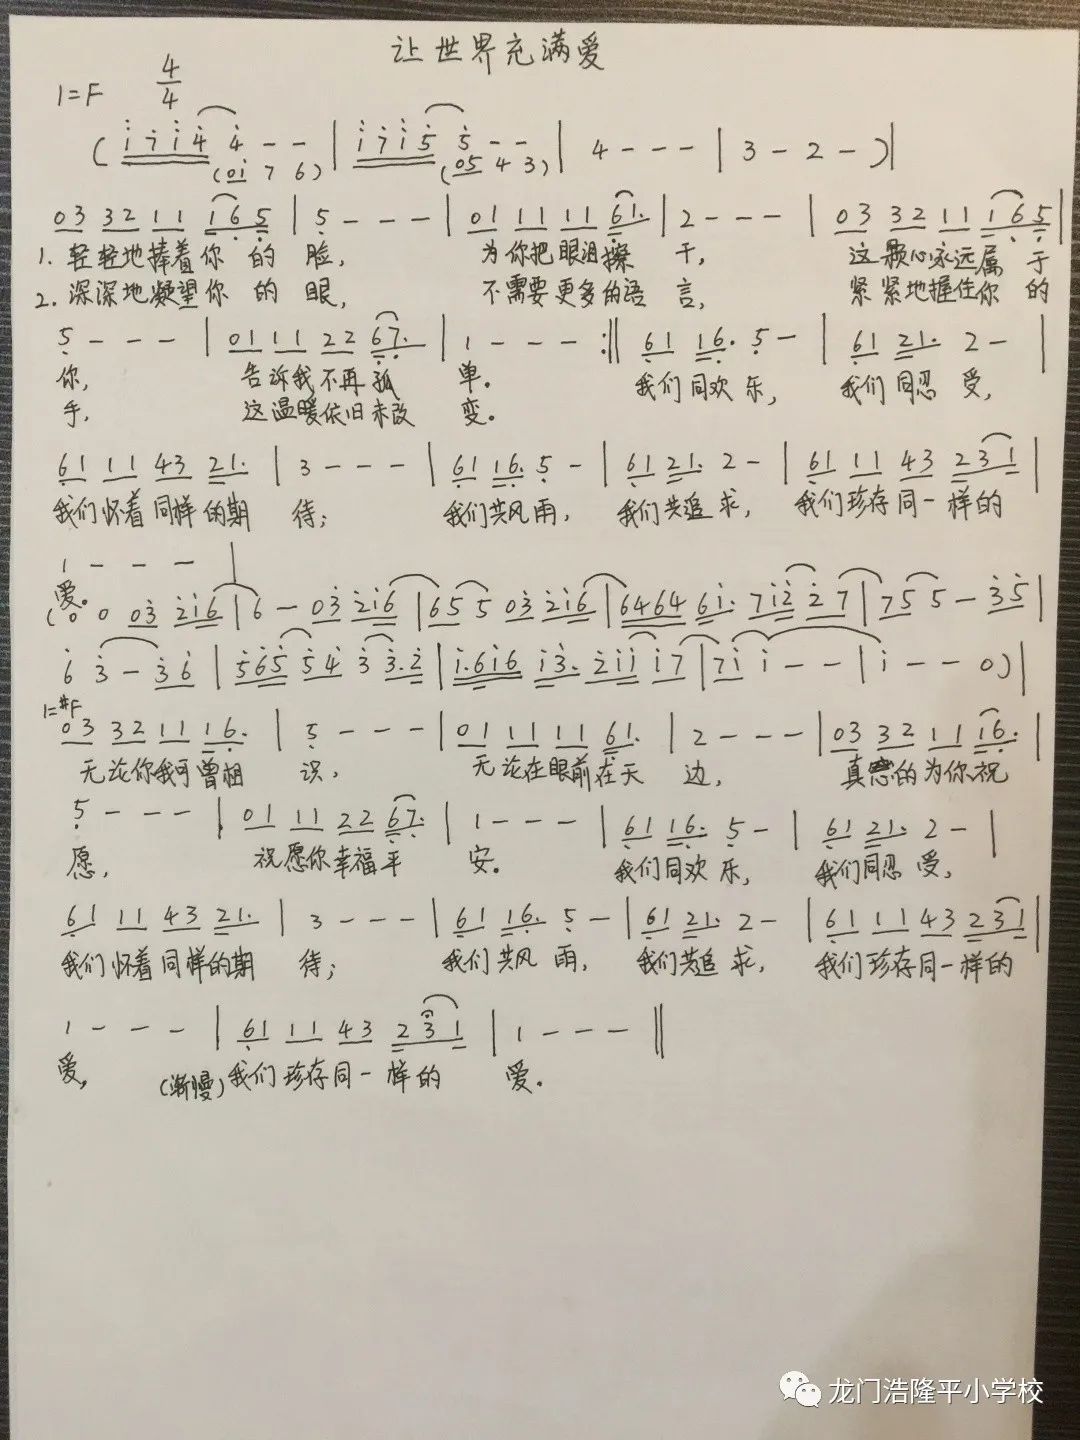 让世界充满爱
1=F 4/4
( i 7 i 4 4 - - | i 7 i 5 5 - - | 4 - - - | 3 - 2 - ) |
(0i 7 6) (05 4 3)
03 32 11 165 | 5 - - - | 01 11 11 61. | 2 - - - | 03 32 11 165 |
1. 轻轻地捧着你的脸, 为你把眼泪擦干, 这颗心永远属于
2. 深深地凝望你的眼, 不需要更多的语言, 紧紧地握住你的
5 - - - | 01 11 22 67. | 1 - - - :|| 61 16. 5 - | 61 21. 2 - |
你, 告诉我不再孤单。 我们同欢乐, 我们同忍受,
手, 这温暖依旧未改变。
61 11 43 21. | 3 - - - | 61 16. 5 - | 61 21. 2 - | 61 11 43 231 |
我们怀着同样的期待; 我们共风雨, 我们共追求, 我们珍存同一样的
1 - - - |
爱。
(0 0 03 2i6 | 6 - 03 2i6 | 65 5 03 2i6 | 6464 6i. 7i2 27 | 75 5 - 35 |
6 3 - 36 | 565 54 3 3.2 | i.6i6 i3. 2ii i7 | 7i i - - | i - - 0) |
1=#F
03 32 11 16. | 5 - - - | 01 11 11 61. | 2 - - - | 03 32 11 16. |
无论你我可曾相识, 无论在眼前在天边, 真的为你祝
5 - - - | 01 11 22 67. | 1 - - - | 61 16. 5 - | 61 21. 2 - |
愿, 祝愿你幸福平安。 我们同欢乐, 我们同忍受,
61 11 43 21. | 3 - - - | 61 16. 5 - | 61 21. 2 - | 61 11 43 231 |
我们怀着同样的期待; 我们共风雨, 我们共追求, 我们珍存同一样的
1 - - - | 61 11 43 231 | 1 - - - ||
爱, (渐慢)我们珍存同一样的爱。
龙门浩隆平小学校